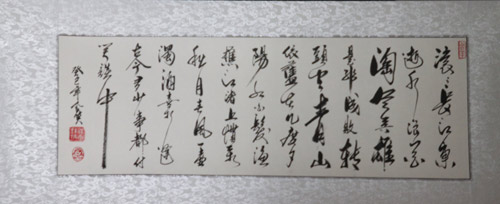 滚〻長江東
逝水浪花
淘尽英雄
是非成败转
頭空青山
依舊在几度夕
陽红白髮渔
樵江渚上惯看
秋月春風一壶
濁酒喜相逢
古今多少事都付
笑谈中
癸巳年